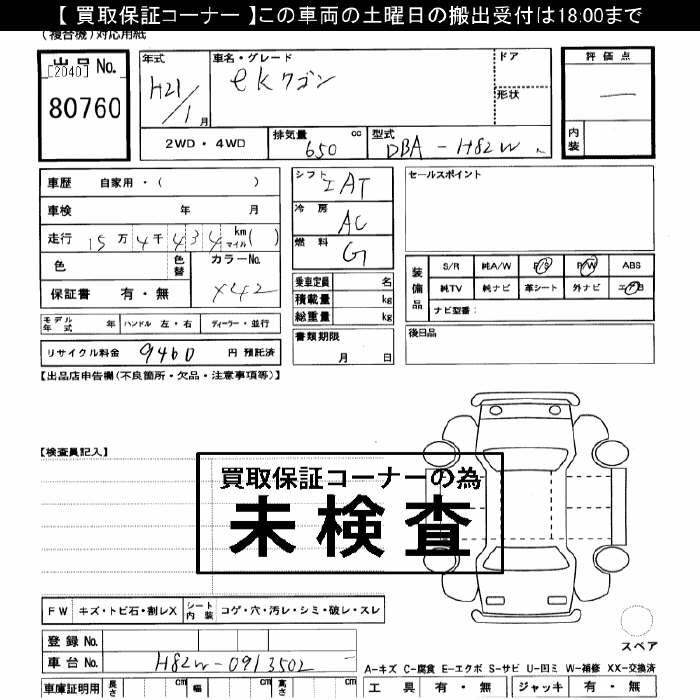 【 買取保証コーナー 】この車両の土曜日の搬出受付は18:00まで
(複合機)対応用紙
出品No.
[2040]
80760
年式
H21/1月
車名・グレード
ekワゴン
ドア
形状
評価点
—
内装
2WD・4WD
排気量 650 cc
型式 DBA-H82W
車歴 自家用・( )
車検 年 月
走行 15万4千434 km マイル( )
色
色替
カラーNo.
X42
保証書 有・無
シフト IAT
冷房 AC
燃料 G
乗車定員 名
積載量 kg
総重量 kg
書類期限
月 日
セールスポイント
装備品
S/R 純A/W P/S P/W ABS
純TV 純ナビ 革シート 外ナビ エアB
ナビ型番:
後日品
モデル年式 年 ハンドル 左・右 ディーラー・並行
リサイクル料金 9460 円 預託済
【出品店申告欄(不良箇所・欠品・注意事項等)】
【検査員記入】
買取保証コーナーの為
未検査
FW キズ・トビ石・割レX シート内装 コゲ・穴・汚レ・シミ・破レ・スレ
登録No.
車台No. H82W-0913502
スペア
A-キズ C-腐食 E-エクボ S-サビ U-凹ミ W-補修 XX-交換済
車庫証明用 長さ cm 幅 cm 高さ cm
工具 有・無 ジャッキ 有・無